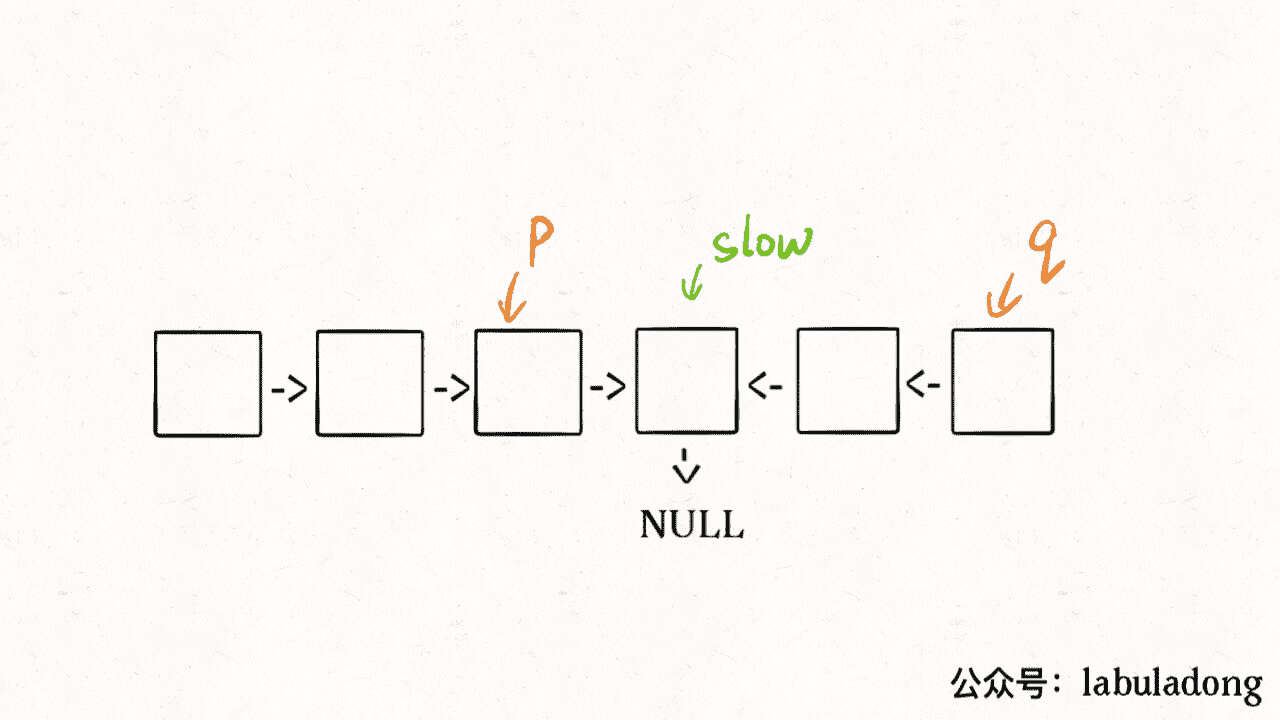 p
slow
q
NULL
公众号：labuladong